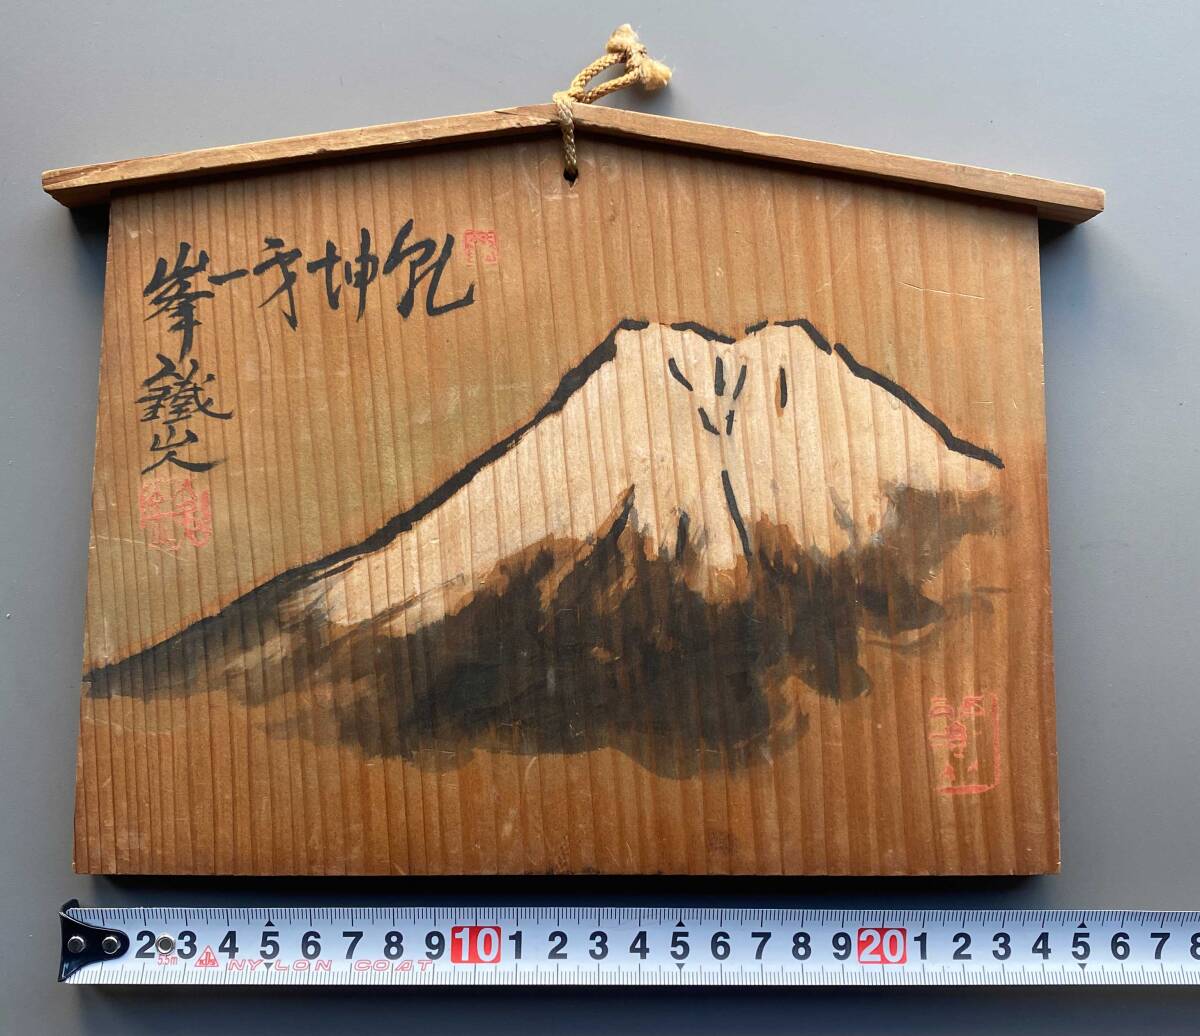 乾坤才一峯
八鐵山人
2 3 4 5 6 7 8 9 10 1 2 3 4 5 6 7 8 9 20 1 2 3 4 5 6 7 8
5.5m NYLON COAT